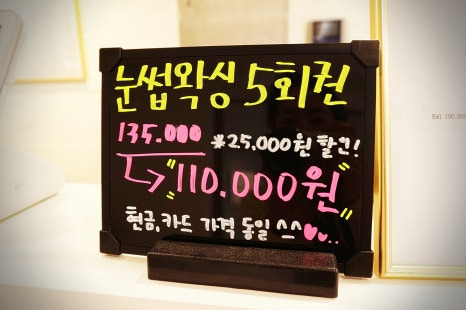 눈썹왁싱 5회권
135.000 *25,000원 할인!
"110.000원"
현금,카드 가격 동일 ^^♥♥..